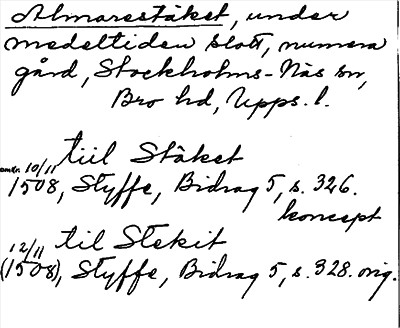 Almarestäket, under
medeltiden slott, numera
gård, Stockholms-Näs sn,
Bro hd, Upps. l.
tiil Stäket
omkr. 10/11
1508, Styffe, Bidrag 5, s. 326.
koncept
til Stekit
12/11
(1508), Styffe, Bidrag 5, s. 328. orig.